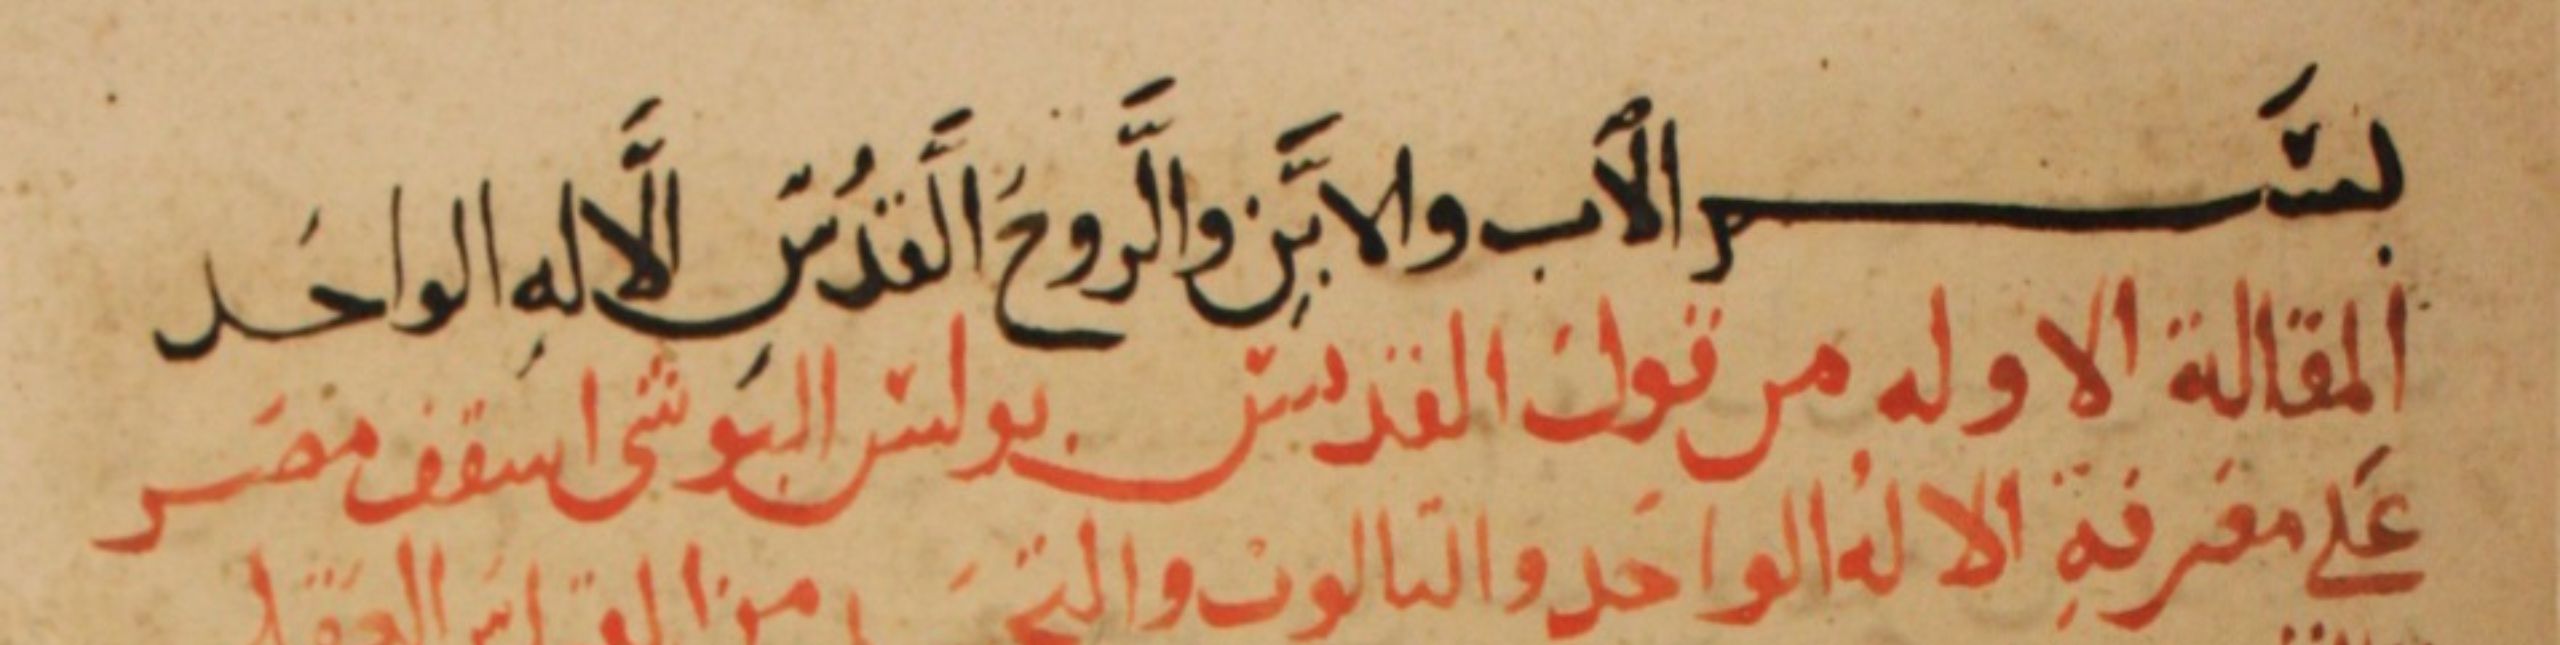 بسم الاب والابن والروح القدس الالاه الواحد
المقالة الاوله من قول القديس بولس البوشى اسقف مصر
على معرفة الالاه الواحد والتالوت والتجسد
من القياس العقلي